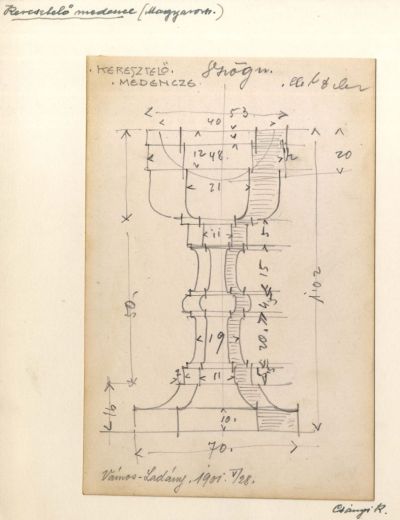 Keresztelő medence (Magyarors.)
KERESZTELŐ.
MEDENCZE.
8szögű.
53
40
12 48.
20
21
11
5
15
50.
102
4,5
19
20.
11
16
10.
70.
Vámos-Ladány. 1901. V/28.
Csányi K.